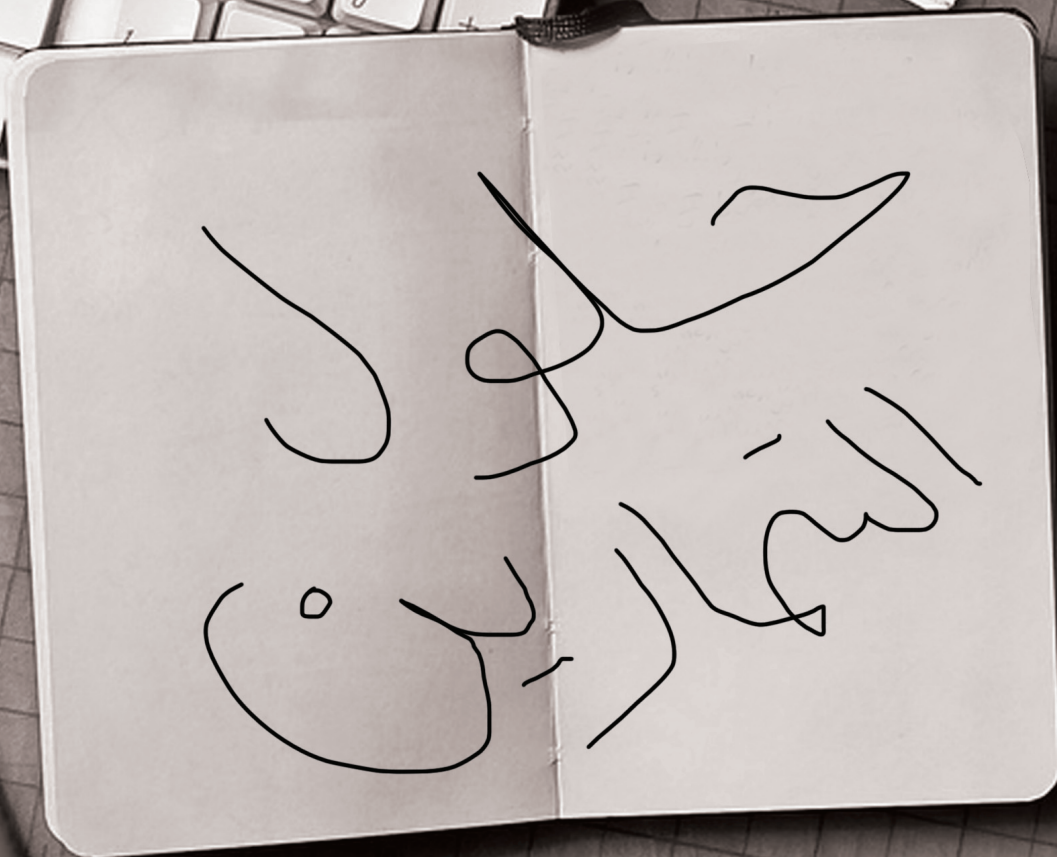 حلول
التمارين